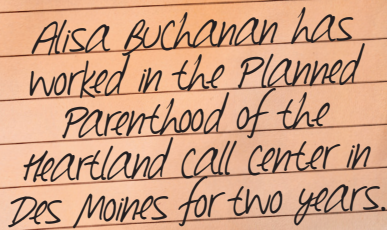 Alisa Buchanan has
worked in the Planned
Parenthood of the
Heartland call center in
Des Moines for two years.